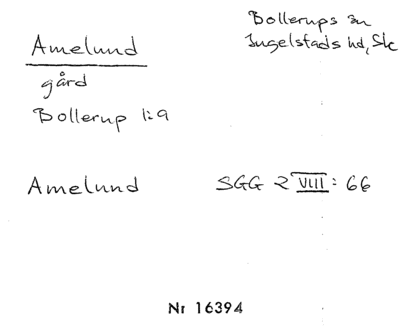 Amelund
Bollerups sn
Ingelstads hd, Sk
gård
Bollerup 1:9
Amelund SGG 2 VIII: 66
Nr 16394